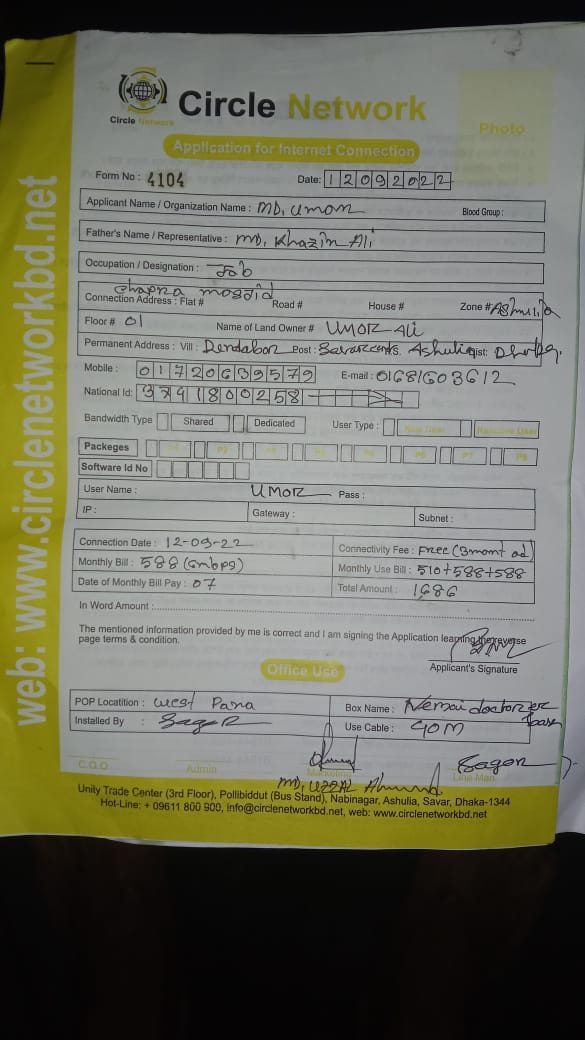 Circle Network
Circle Network
Photo
Application for Internet Connection
Form No : 4104 Date: 12092022
Applicant Name / Organization Name : MD, Umor Blood Group :
Father's Name / Representative : MD, Khazin Ali
Occupation / Designation : Job
chapra mosjid
Connection Address : Flat # Road # House # Zone # Ashulia
Floor # 01 Name of Land Owner # UMOR Ali
Permanent Address : Vill : Dendabor Post : Ashulia Dist:
Mobile : 01720639579 E-mail : 01681603612
National Id: 3741800258
Bandwidth Type Shared Dedicated User Type : New User
Packeges P2 P6 P7 P8
Software Id No
User Name : UMOR Pass :
IP : Gateway : Subnet :
Connection Date : 12-09-22 Connectivity Fee : Free (3mont ad)
Monthly Bill : 588 (6mbps) Monthly Use Bill : 510+588+588
Date of Monthly Bill Pay : 07 Total Amount : 1686
In Word Amount :
The mentioned information provided by me is correct and I am signing the Application learning the reverse
page terms & condition.
Applicant's Signature
Office Use
POP Locatition : west Para Box Name : Nemai doctorer
Installed By : Sagor Use Cable : 40M
Sagor
C.O.O Admin Marketing Line Man
MD, UZZAL Ahmed
Unity Trade Center (3rd Floor), Pollibiddut (Bus Stand), Nabinagar, Ashulia, Savar, Dhaka-1344
Hot-Line: + 09611 800 900, info@circlenetworkbd.net, web: www.circlenetworkbd.net
web: www.circlenetworkbd.net